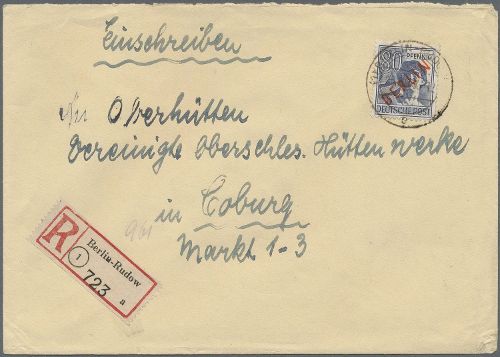 Einschreiben
An Oberhütten
Vereinigte Oberschles. Hüttenwerke
in Coburg
Markt 1-3
80 PFENNIG
BERLIN
DEUTSCHE POST
R
Berlin-Rudow
1
723 a